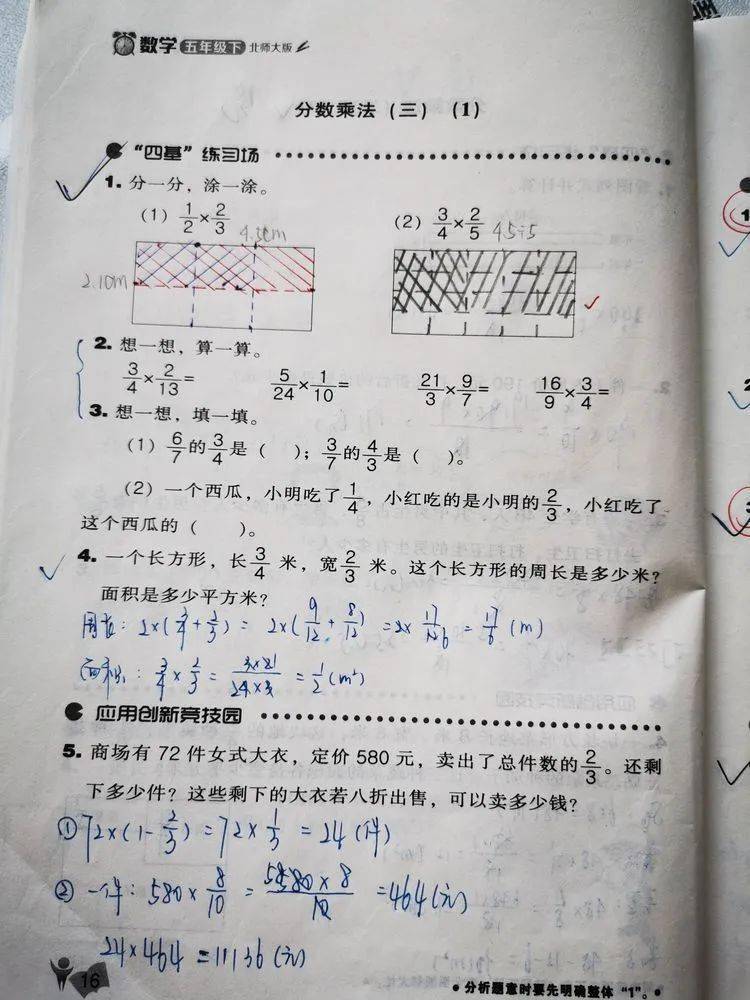 数学 五年级下 北师大版
分数乘法（三）（1）
“四基”练习场
1. 分一分，涂一涂。
（1）1/2×2/3 （2）3/4×2/5 45÷5
2.10m
2. 想一想，算一算。
3/4×2/13= 5/24×1/10= 21/3×9/7= 16/9×3/4=
3. 想一想，填一填。
（1）6/7的3/4是（ ）；3/7的4/3是（ ）。
（2）一个西瓜，小明吃了1/4，小红吃的是小明的2/3，小红吃了
这个西瓜的（ ）。
4. 一个长方形，长3/4米，宽2/3米。这个长方形的周长是多少米？
面积是多少平方米？
周长：2×(3/4+2/3)=2×(9/12+8/12)=2×17/12=17/6(m)
面积：3/4×2/3= =1/2(m²)
应用创新竞技园
5. 商场有72件女式大衣，定价580元，卖出了总件数的2/3。还剩
下多少件？这些剩下的大衣若八折出售，可以卖多少钱？
①72×(1-2/3)=72×1/3=24(件)
②一件：580×8/10=580×8/10=464(元)
24×464=11136(元)
16
分析题意时要先明确整体“1”。